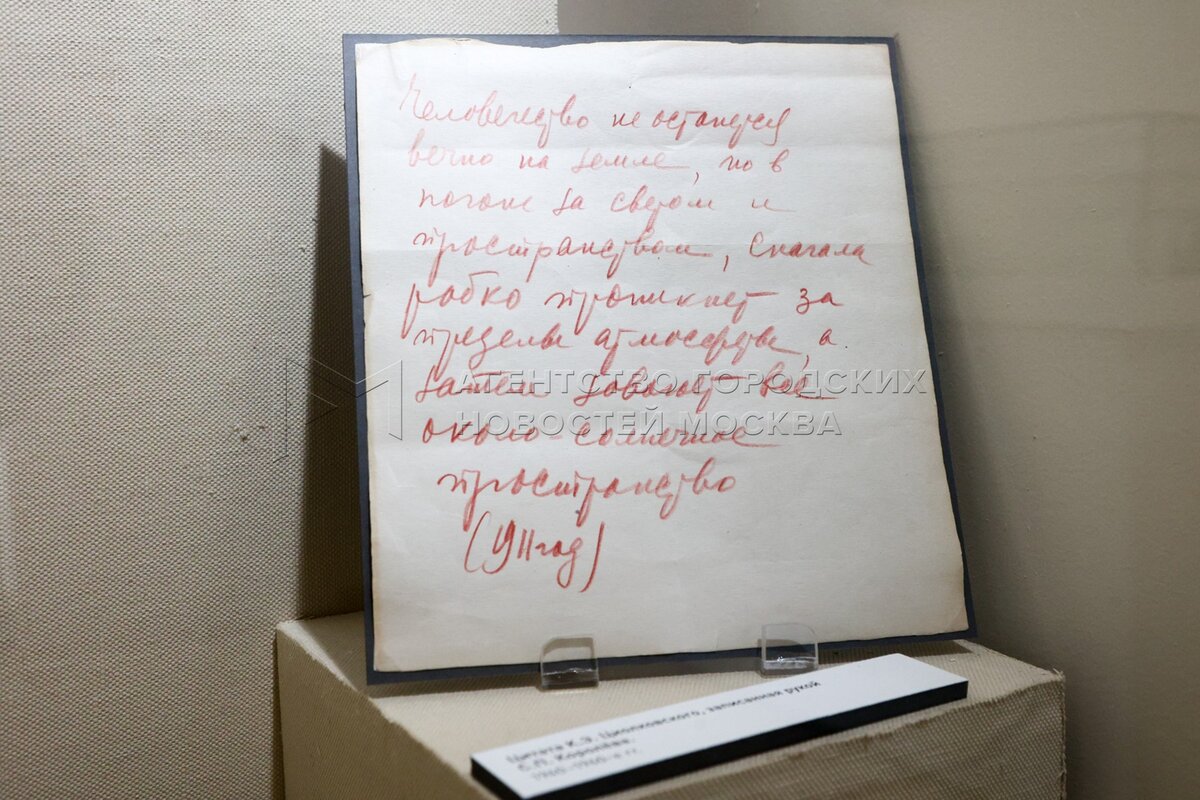 Человечество не останется
вечно на земле, но в
погоне за светом и
пространством, сначала
робко проникнет за
пределы атмосферы, а
затем завоюет все
около-солнечное
пространство
(1911 год)
АГЕНТСТВО ГОРОДСКИХ
НОВОСТЕЙ МОСКВА
Цитата К.Э. Циолковского, записанная рукой
С.П. Королёва.